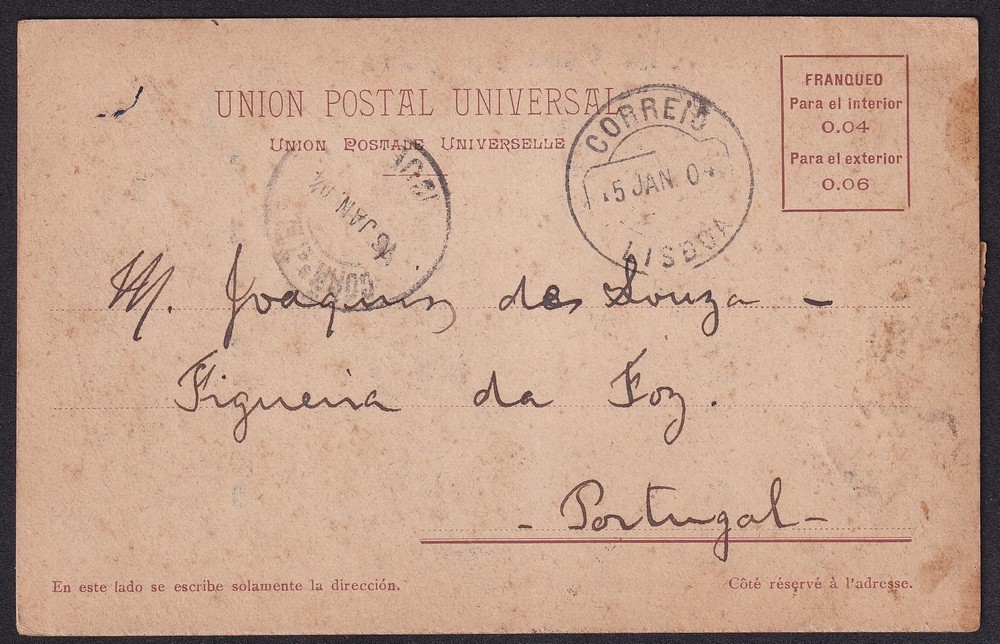 UNION POSTAL UNIVERSAL
UNION POSTALE UNIVERSELLE
FRANQUEO
Para el interior
0.04
Para el exterior
0.06
CORREIO
15 JAN. 04
LISBOA
16 JAN
M. Joaquim de Souza -
Figueira da Foz.
- Portugal -
En este lado se escribe solamente la dirección.
Côté réservé à l'adresse.